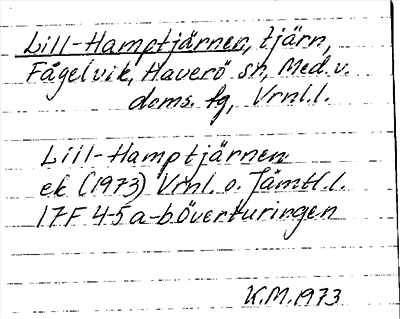 Lill-Hamptjärnen, tjärn,
Fågelvik, Haverö sn, Med. v.
doms. fg, Vrnl.l.
Lill-Hamptjärnen
ek (1973) Vrnl. o. Jämtl.l.
17F 4-5 a-b Överturingen
K.M. 1973